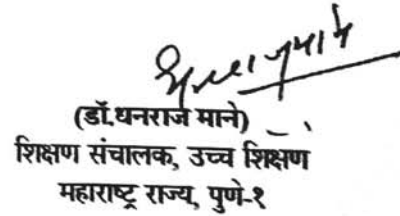 (डॉ.धनराज माने)
शिक्षण संचालक, उच्च शिक्षण
महाराष्ट्र राज्य, पुणे-१